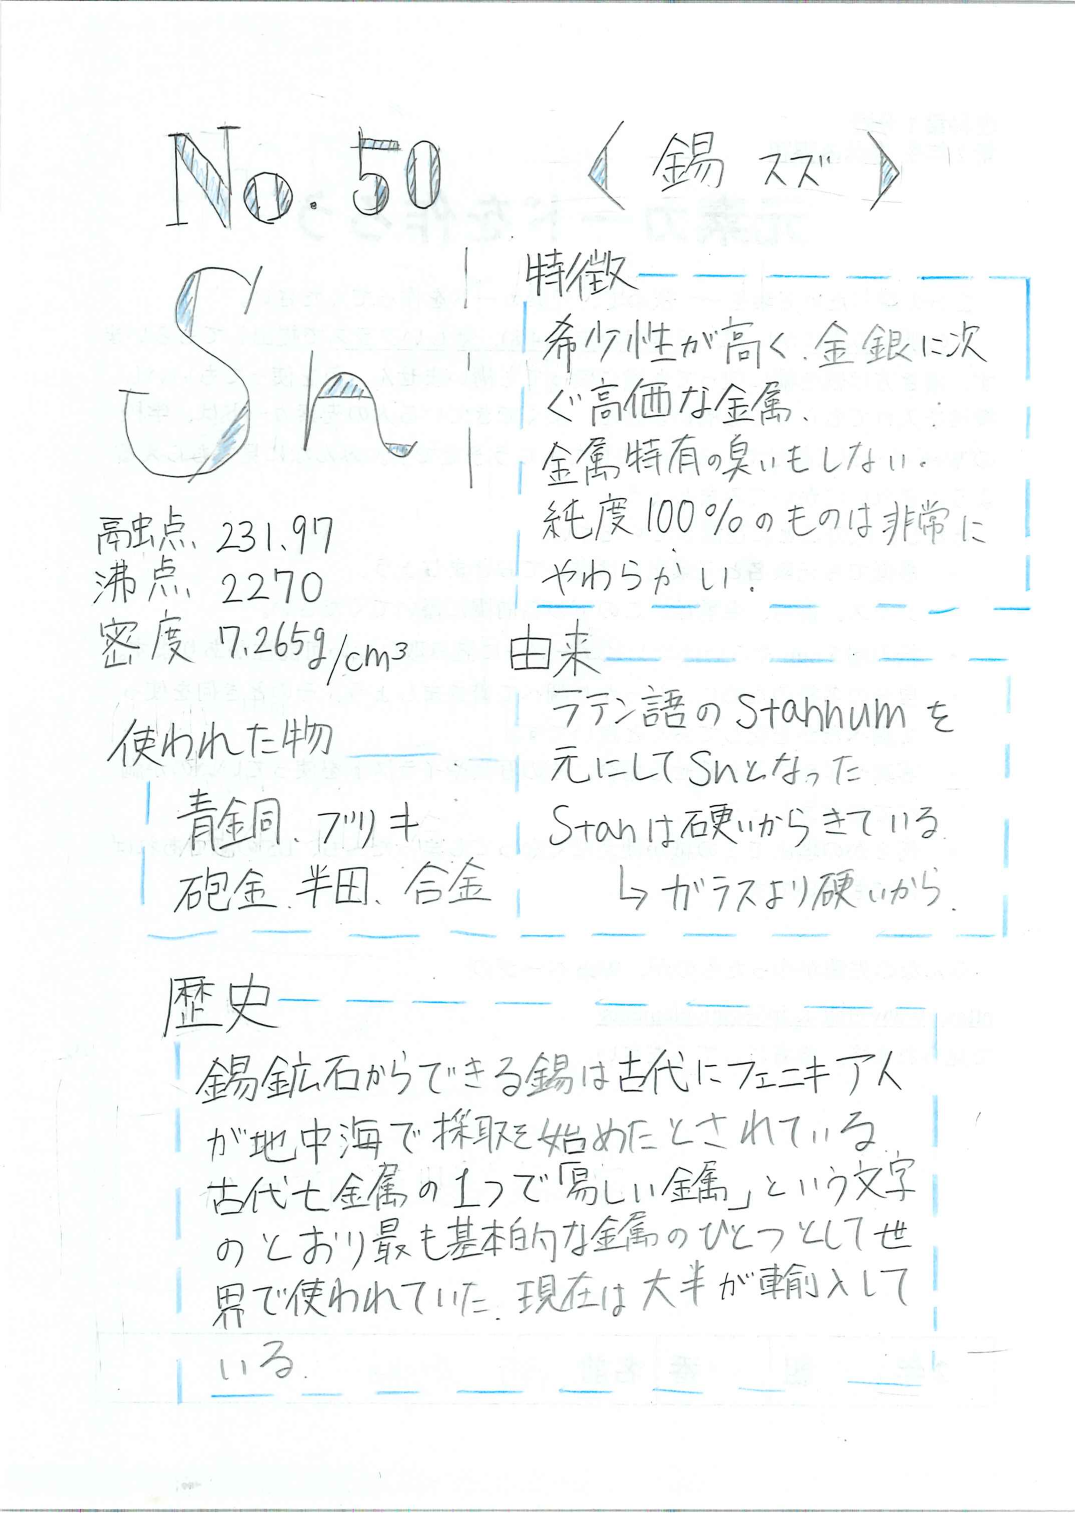 No. 50
〈 錫 スズ 〉
Sn
融点、231.97
沸点、2270
密度 7.265g/cm³
使われた物
青銅、ブリキ
砲金、半田、合金
特徴
希少性が高く、金銀に次
ぐ高価な金属、
金属特有の臭いもしない。
純度100%のものは非常に
やわらかい。
由来
ラテン語のStannumを
元にしてSnとなった
Stanは硬いからきている。
↳ ガラスより硬いから。
歴史
錫鉱石からできる錫は古代にフェニキア人
が地中海で採取を始めたとされている。
古代七金属の1つで「易しい金属」という文字
のとおり最も基本的な金属のひとつとして世
界で使われていた。現在は大半が輸入して
いる。